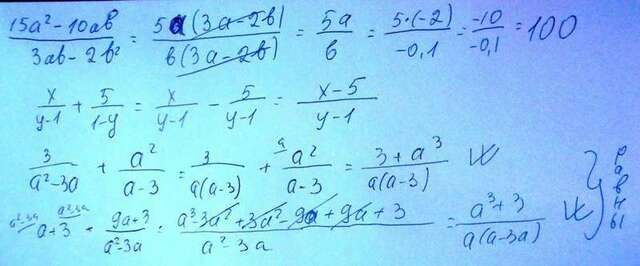 (15a² - 10ab)/(3ab - 2b²) = 5a(3a - 2b)/b(3a - 2b) = 5a/b = 5·(-2)/-0,1 = -10/-0,1 = 100
x/(y-1) + 5/(1-y) = x/(y-1) - 5/(y-1) = (x-5)/(y-1)
3/(a²-3a) + a²/(a-3) = 3/a(a-3) + a a²/(a-3) = (3+a³)/a(a-3)
a²-3a a²-3a a+3 + (9a+3)/(a²-3a) = (a³-3a²+3a²-9a+9a+3)/(a²-3a) = (a³+3)/a(a-3a)
равны